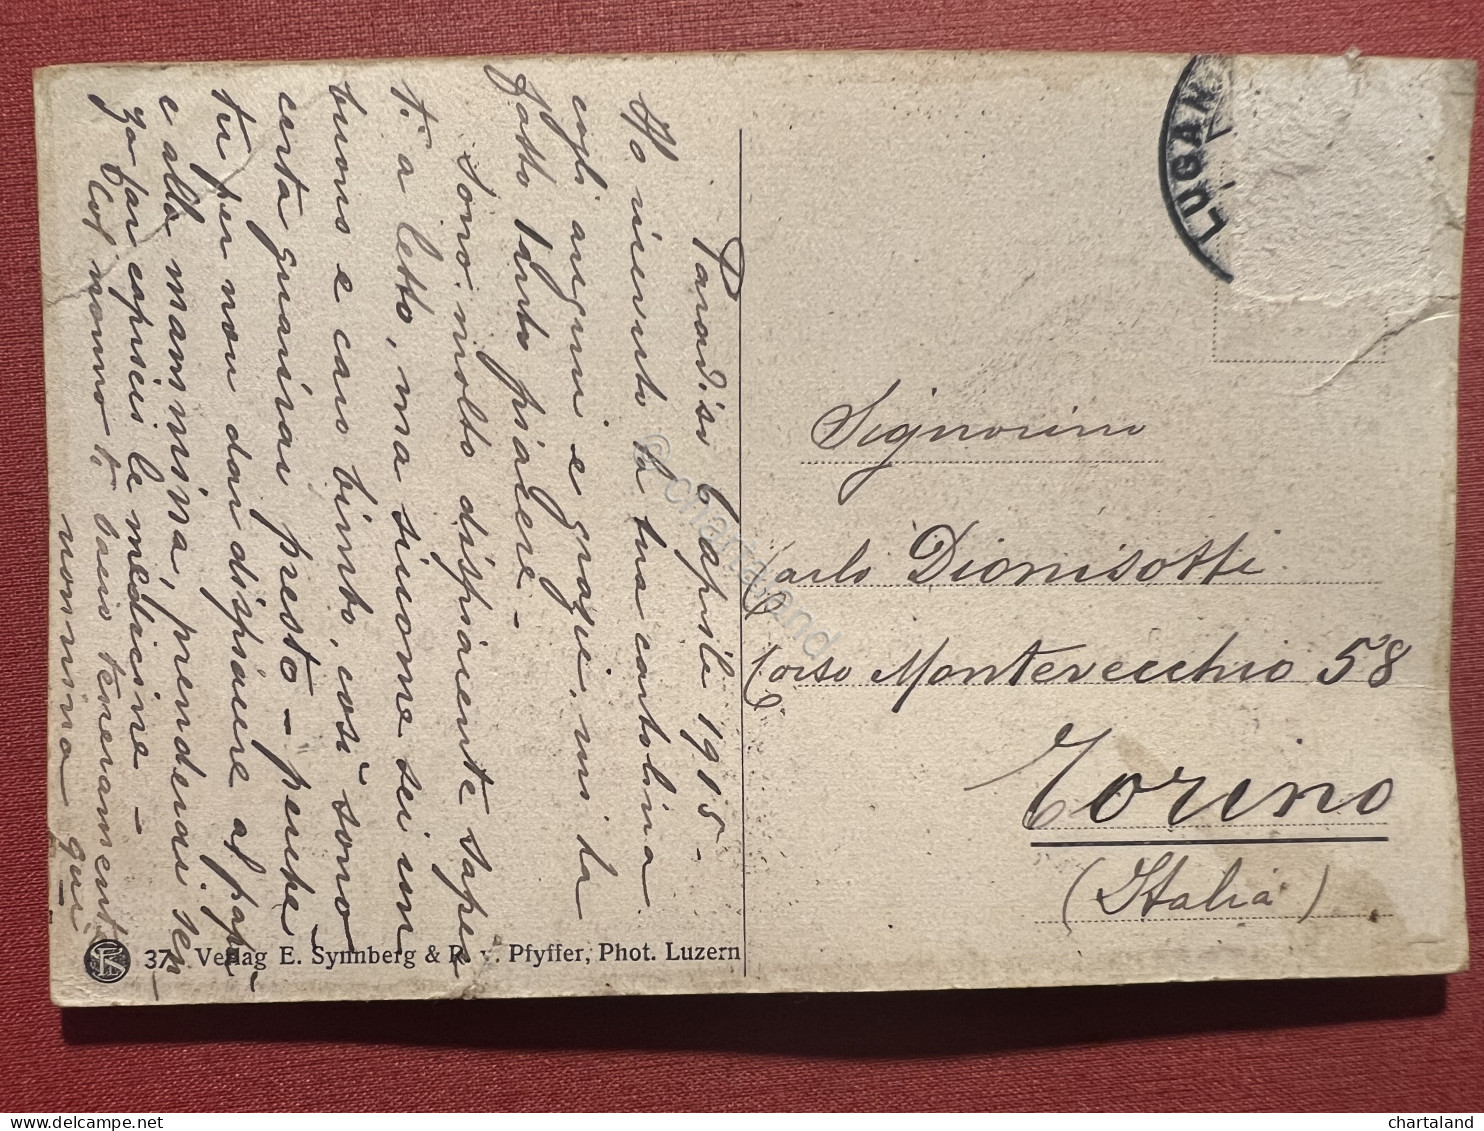 Paradiso 6 aprile 1915 -
Ho ricevuto la tua cartolina
cogli auguri e grazie, mi ha
fatto tanto piacere -
Sono molto dispiacente saper
ti a letto, ma siccome sei un
buono e caro bimbo, così sono
certa guarirai presto - perchè
tu per non dar dispiacere al papà
e alla mammina, prenderai sen
za far capricci le medicine -
Col nonno ti bacio teneramente
nonnina
LUGAN
Signorino
Carlo Dionisotti
Corso Montevecchio 58
Torino
(Italia)
37 Verlag E. Synnberg & R. v. Pfyffer, Phot. Luzern
© chartaland
chartaland
delcampe.net